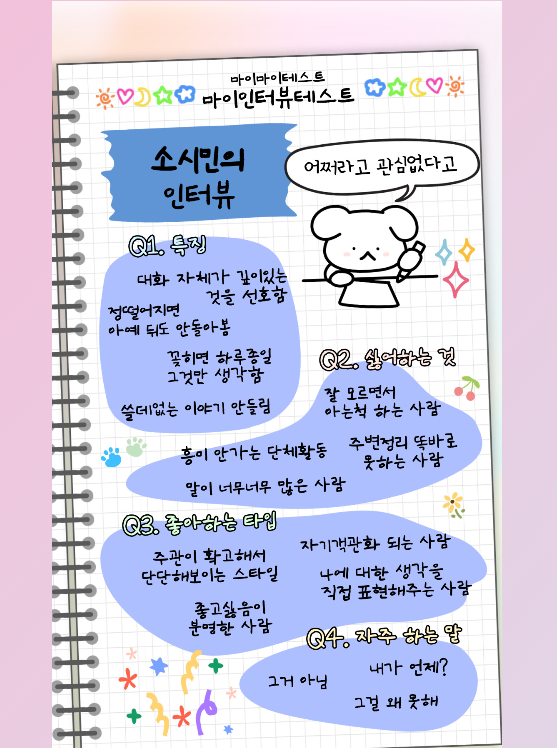 마이마이테스트
마이인터뷰테스트
소시민의
인터뷰
어쩌라고 관심없다고
Q1. 특징
대화 자체가 깊이있는
것을 선호함
정떨어지면
아예 뒤도 안돌아봄
꽂히면 하루종일
그것만 생각함
쓸데없는 이야기 안들림
Q2. 싫어하는 것
잘 모르면서
아는척 하는 사람
흥이 안가는 단체활동
주변정리 똑바로
못하는 사람
말이 너무너무 많은 사람
Q3. 좋아하는 타입
주관이 확고해서
단단해보이는 스타일
자기객관화 되는 사람
나에 대한 생각을
직접 표현해주는 사람
좋고싫음이
분명한 사람
Q4. 자주 하는 말
그거 아님
내가 언제?
그걸 왜 못해